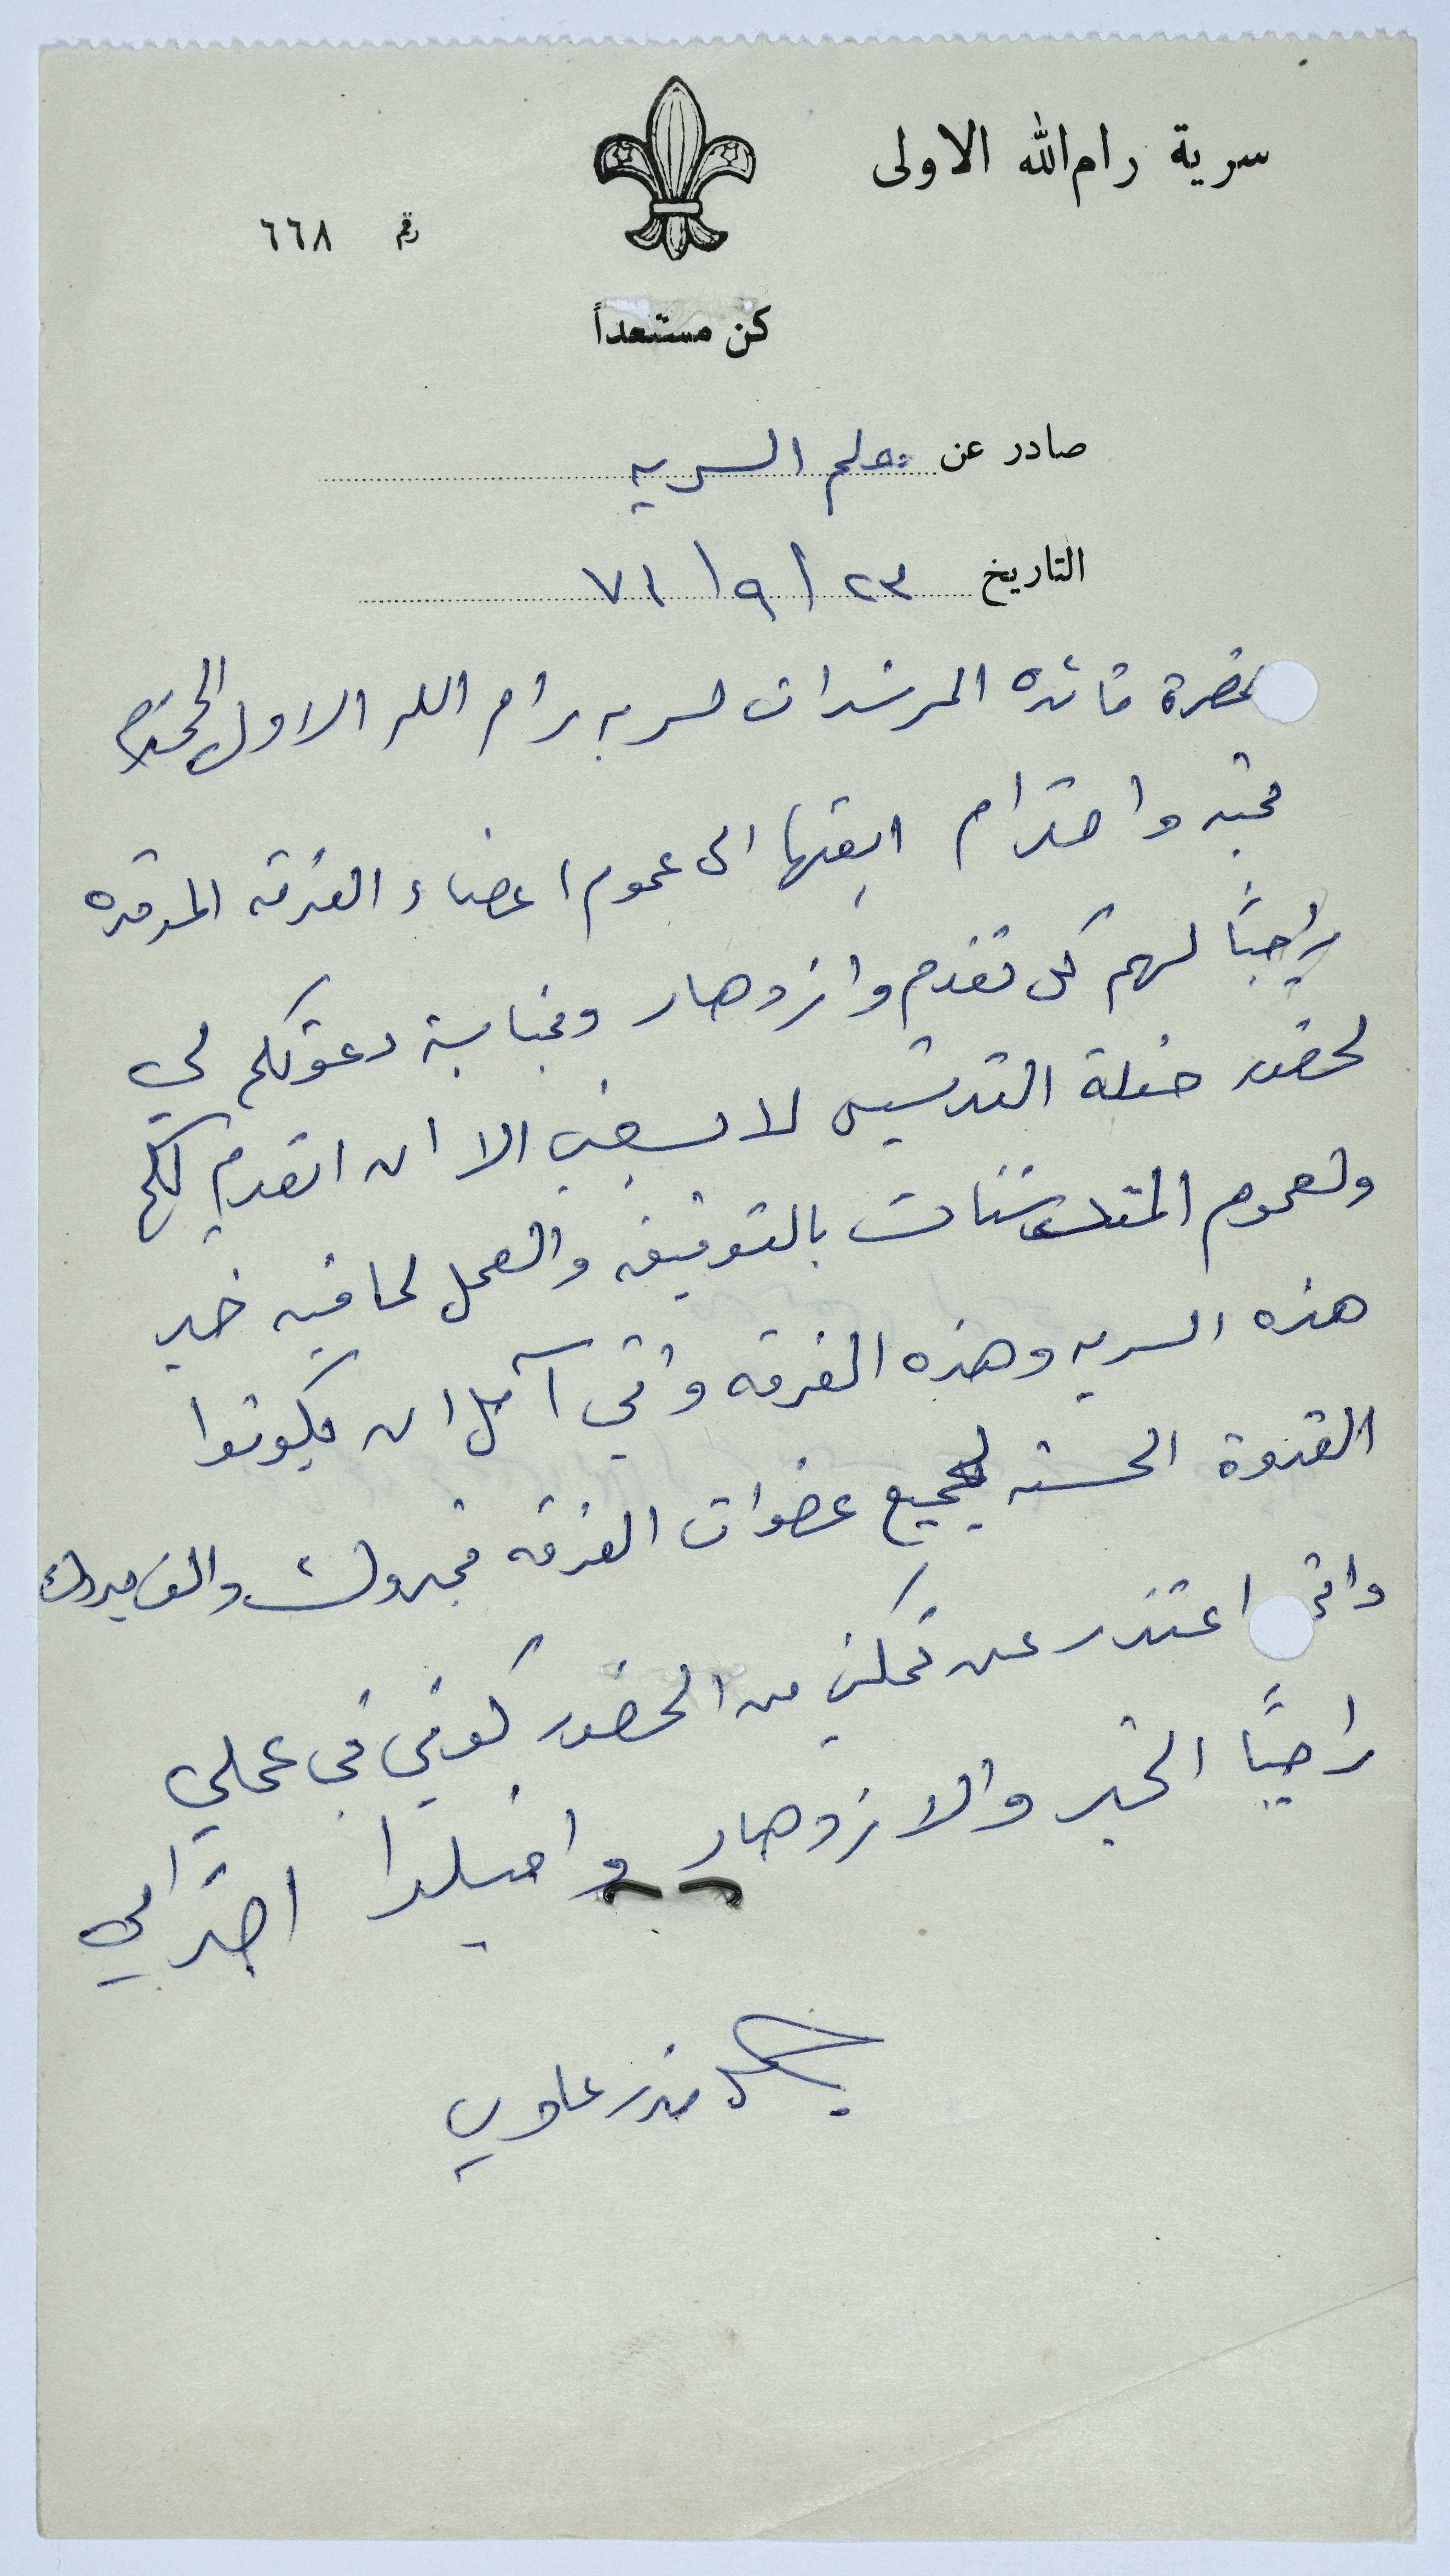 سرية رام الله الاولى
رقم ٦٦٨
كن مستعداً
صادر عن معلم السريه
التاريخ ٢٣ / ٩ / ٧١
حضرة قائده المرشدات لسريه رام الله الاولى المحترم
محبه واحترام ابعثها الى عموم اعضاء الفرقه الموقره
راجياً لهم كل تقدم وازدهار وبمناسبة دعوتكم لي
لحضور حفلة التدشين لا يسعني الا ان اتقدم لكم
ولعموم المتدشنات بالتوفيق والعمل لما فيه خير
هذه السريه وهذه الفرقه وانني آمل ان يكونوا
القدوة الحسنه لجميع عضوات الفرقه فمبروك والف مبروك
واني اعتذر عن تمكني من الحضور كوني في عملي
راجياً الخير والازدهار واقبلوا احترامي